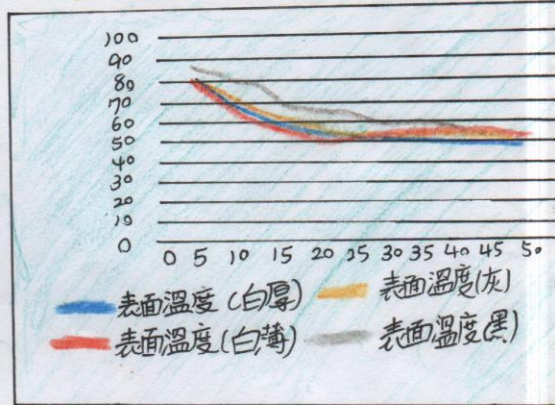 100
90
80
70
60
50
40
30
20
10
0
0 5 10 15 20 25 30 35 40 45 50
表面溫度(白厚) 表面溫度(灰)
表面溫度(白薄) 表面溫度(黑)